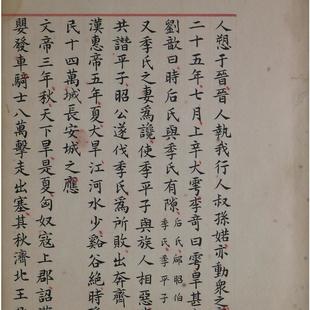 人愬于晉晉人執我行人叔孫婼亦動衆之
二十五年七月上辛大雩季奇曰雩旱甚
劉歆曰時后氏與季氏有隙后氏郈昭伯季氏季平子
又季氏之妻爲讒使季平子與族人相惡
共譖平子昭公遂伐季氏爲所敗出奔齊
漢惠帝五年夏大旱江河水少谿谷絕時
民十四萬城長安城之應
文帝三年秋天下旱是夏匈奴寇上郡詔
嬰發車騎士八萬擊走出塞其秋濟北王